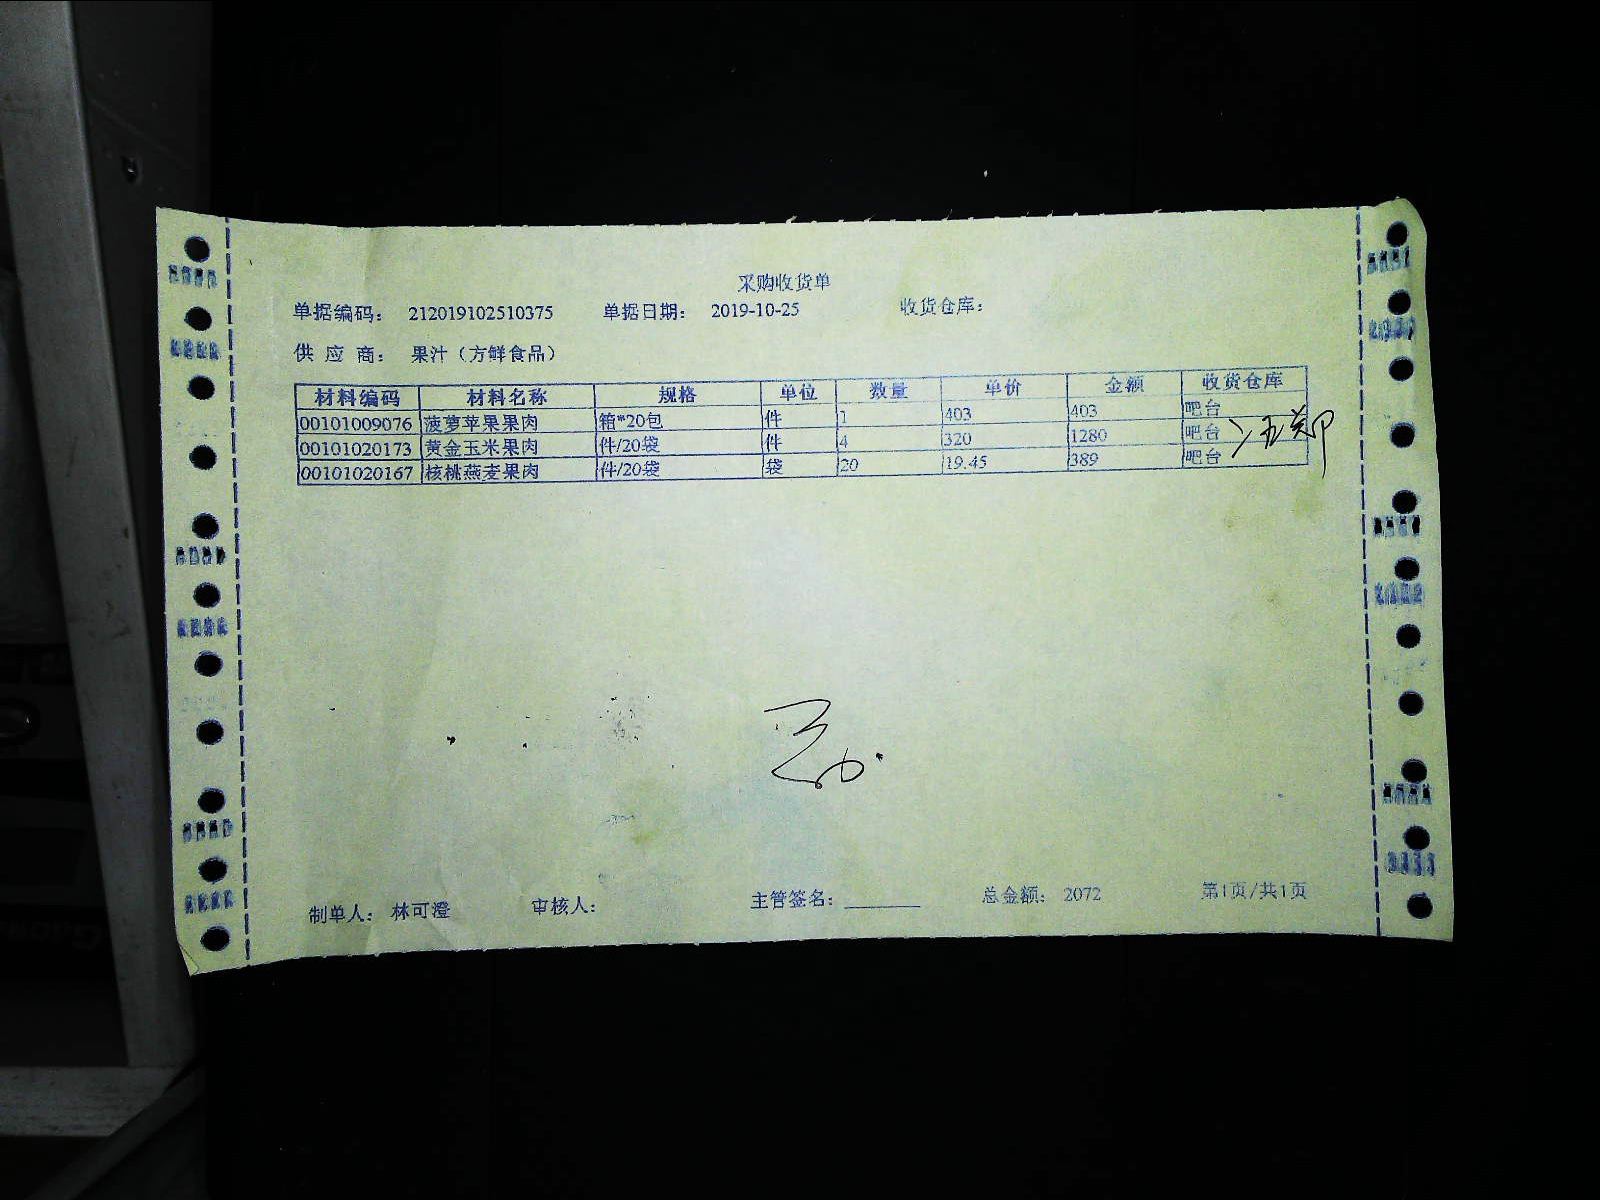 采购收货单
单据编码： 212019102510375 单据日期： 2019-10-25 收货仓库：
供 应 商： 果汁（方鲜食品）
材料编码 材料名称 规格 单位 数量 单价 金额 收货仓库
00101009076 菠萝苹果果肉 箱*20包 件 1 403 403 吧台
00101020173 黄金玉米果肉 件/20袋 件 4 320 1280 吧台
00101020167 核桃燕麦果肉 件/20袋 袋 20 19.45 389 吧台
制单人： 林可澄 审核人： 主管签名：________ 总金额： 2072 第1页/共1页